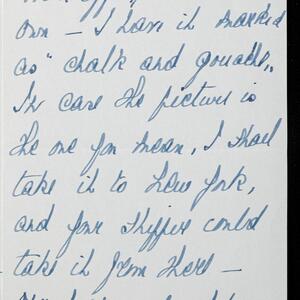 own – I have it marked
as "chalk and gouache"
In case the picture is
the one you mean, I shall
take it to New York,
and your shipper could
take it from there –